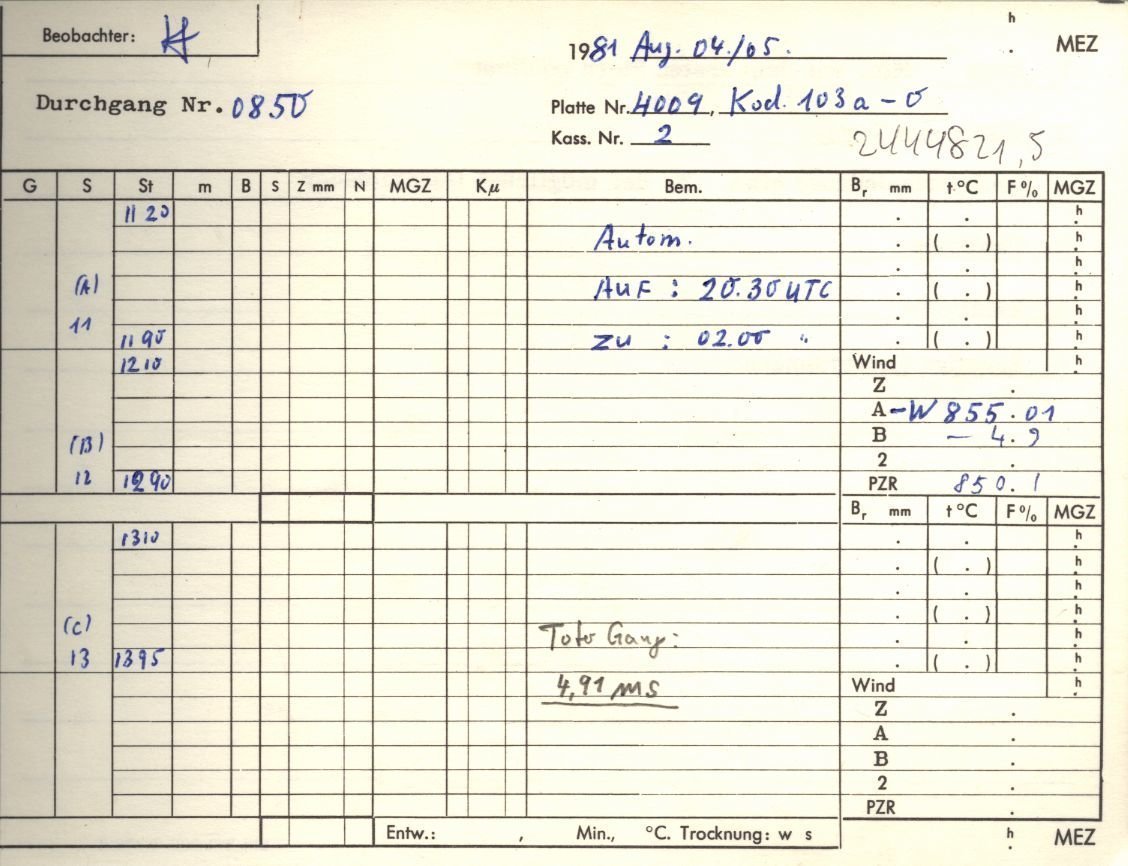 h
Beobachter:
1981 Aug. 04./05. . MEZ
Durchgang Nr. 0850
Platte Nr. 4009, Kod. 103a-O
Kass. Nr. 2
2444821,5
G S St m B S Z mm N MGZ Kμ Bem. Br mm t°C F% MGZ
1120 . . h
Autom. . ( . ) h
. . h
(A) AUF : 20.30 UTC . ( . ) h
11 . . h
1190 ZU : 02.00 " . ( . ) h
1210 Wind h
Z .
A -W 855.01
(B) B - 4.9
2 .
12 1290 PZR 850.1
Br mm t°C F% MGZ
1310 . . h
. ( . ) h
. . h
. ( . ) h
(C) Toto Gang: . . h
13 1395 . ( . ) h
4,91 ms Wind h
Z .
A .
B .
2 .
PZR .
Entw.: , Min., °C. Trocknung: w s h . MEZ